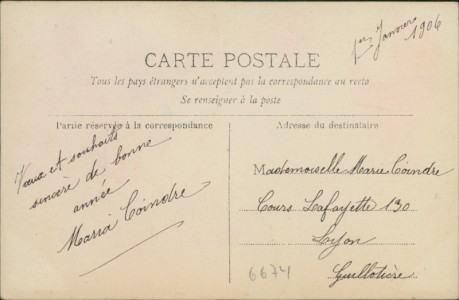 1er Janvier
1906
CARTE POSTALE
Tous les pays étrangers n'acceptent pas la correspondance au recto
Se renseigner à la poste
Partie réservée à la correspondance
Voeux et souhaits
sincère de bonne
année
Maria Coindre
Adresse du destinataire
Mademoiselle Marie Coindre
Cours Lafayette 130
Lyon
Guillotière
6674